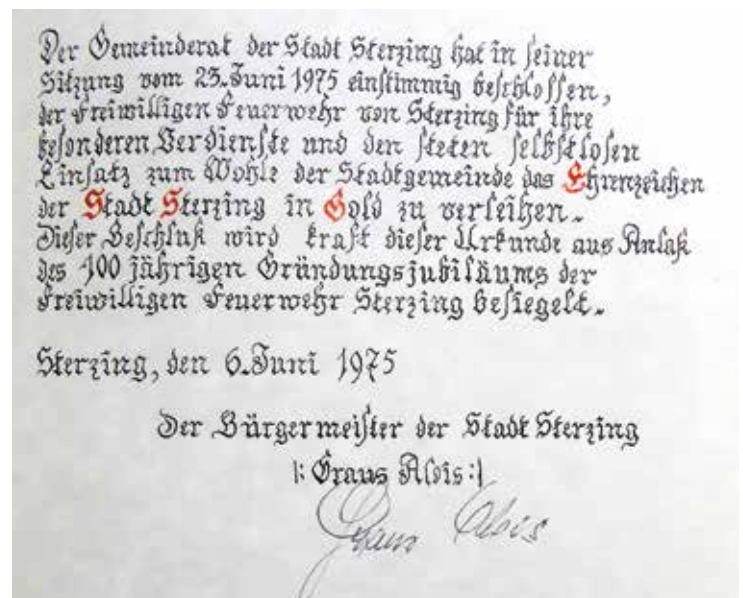 Der Gemeinderat der Stadt Sterzing hat in seiner
Sitzung vom 23. Juni 1975 einstimmig beschlossen,
der Freiwilligen Feuerwehr von Sterzing für ihre
besonderen Verdienste und den steten selbstlosen
Einsatz zum Wohle der Stadtgemeinde das Ehrenzeichen
der Stadt Sterzing in Gold zu verleihen.
Dieser Beschluß wird kraft dieser Urkunde aus Anlaß
des 100 jährigen Gründungsjubiläums der
Freiwilligen Feuerwehr Sterzing besiegelt.
Sterzing, den 6. Juni 1975
Der Bürgermeister der Stadt Sterzing
|: Graus Alois :|
Graus Alois